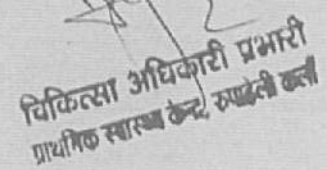 चिकित्सा अधिकारी प्रभारी
प्राथमिक स्वास्थ्य केन्द्र, रुपाहेली कलॉ